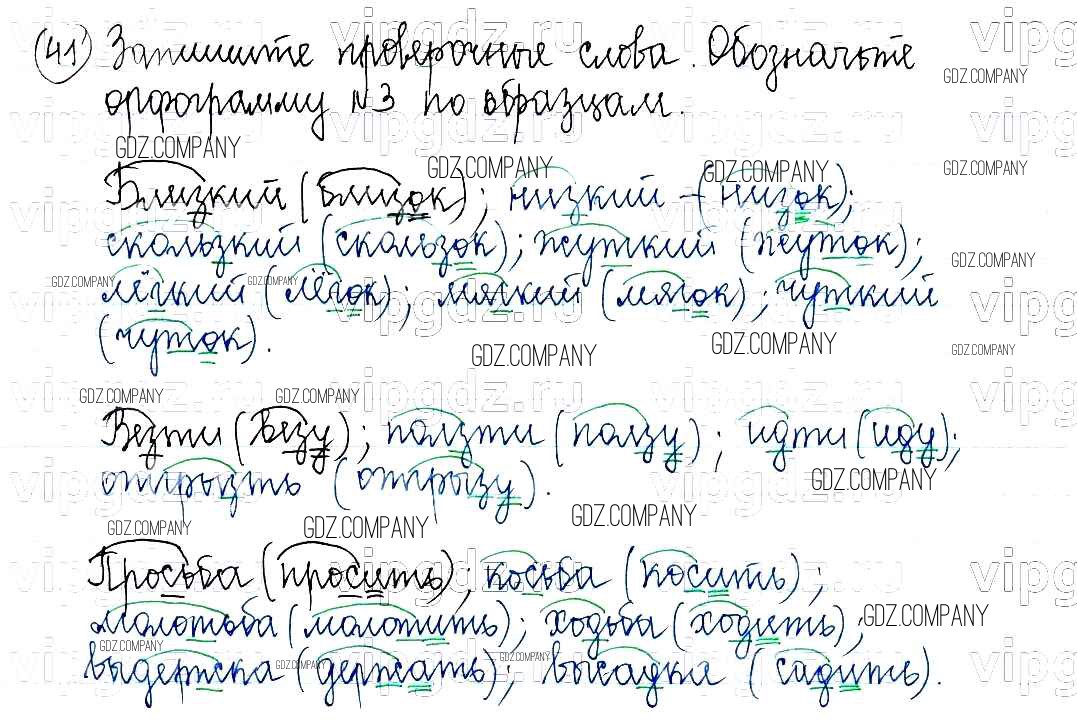 41) Запишите проверочные слова. Обозначьте
орфограмму №3 по образцам.
Близкий (близок); низкий – (низок);
скользкий (скользок); жуткий (жуток);
лёгкий (лёгок); мягкий (мягок); чуткий
(чуток).
Везти (везу); ползти (ползу); идти (иду);
отгрызть (отгрызу).
Просьба (просить); косьба (косить);
молотьба (молотить); ходьба (ходить);
выдержка (держать); высадка (садить).
vipgdz.ru
GDZ.COMPANY